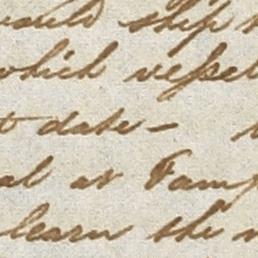 would ship
which vessel
t date –
al at Tamp
learn the